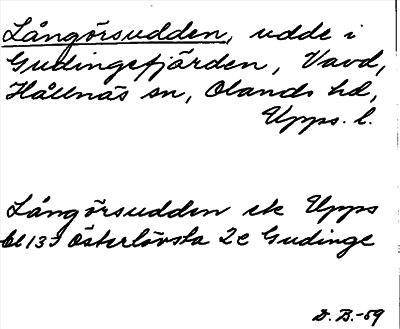 Långörsudden, udde i
Gudingefjärden, Vavd,
Hållnäs sn, Olands hd,
Upps. l.
Långörsudden ek Upps
bl 133 Österlövsta 2e Gudinge
D. B.-59